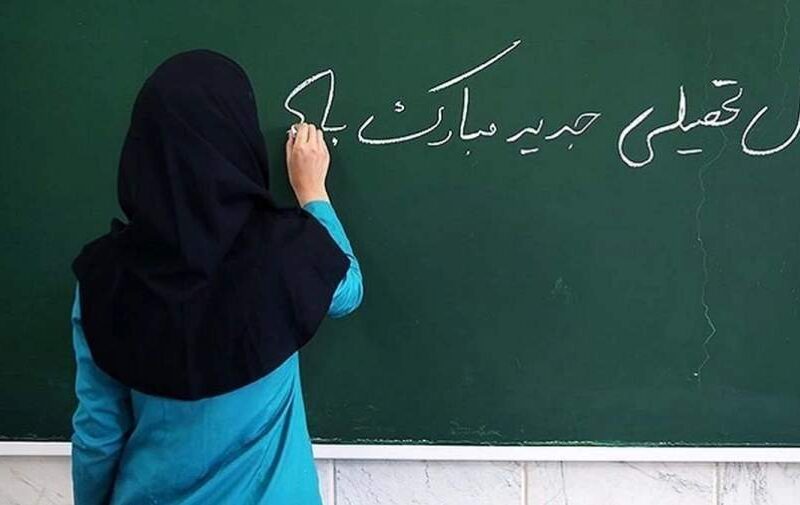 ل تحصیلی جدید مبارک با